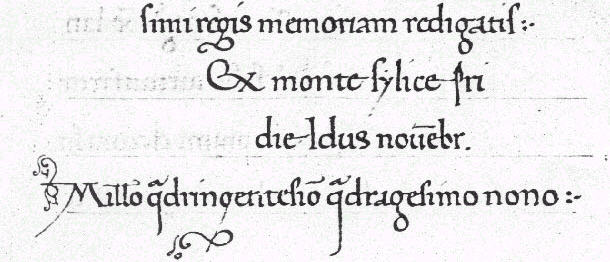 simi regis memoriam redigatis :-
Ex monte sylice pri
die Idus nouēbr.
Millo̅ qͣdringentesio̅ qͣdragesimo nono :-